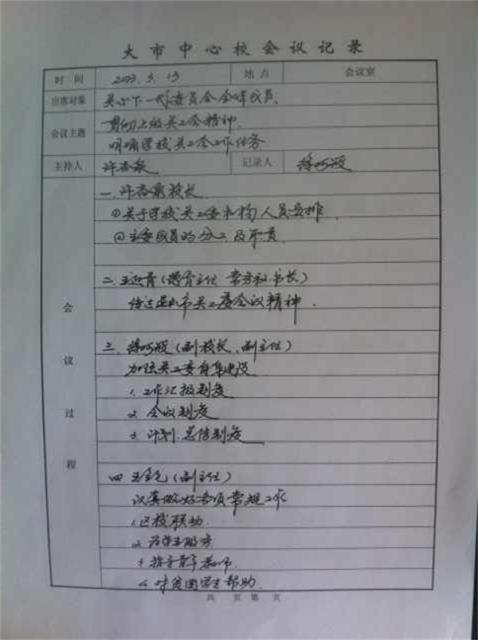 大市中心校会议记录
时间 2013.3.13 地点 会议室
出席对象 关心下一代委员会全体成员.
会议主题 贯彻上级关工会精神.
明确学校关工会工作任务
主持人 许 记录人
一. 许 校长
①关于学校关工委机构人员安排.
②主委成员的分工及职责.
会议过程
二. 王 (德育主任 常务秘书长)
传达 市关工委会议精神.
三. (副校长、副主任)
加强关工委自身建设
1. 工作汇报制度
2. 会议制度
3. 计划.总结制度
四 王 (副主任)
认真做好各项常规工作
1. 校联动.
2. 为学生服务
3. 指导青年教师.
4. 对贫困学生帮助.
共 页 第 页